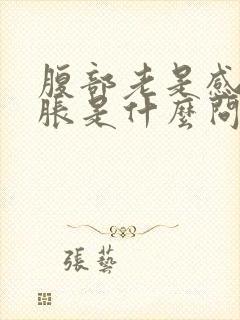 腹部老是感
脹是什麼問
張藝